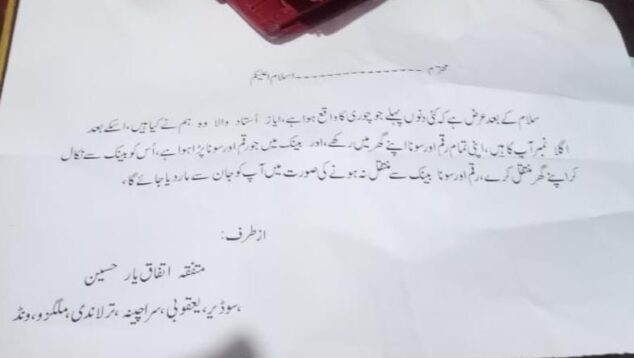 محترم ----------------------- اسلام اعلیکم
سلام کے بعد عرض ہے کہ کئی دنوں پہلے جو چوری کا واقع ہوا ہے، ایاز اُستاد والا وہ ہم نے کیا ہیں، اسکے بعد
اگلا نمبر آپ کا ہیں، اپنی تمام رقم اور سونا اپنے گھر میں رکھے، اور بینک میں جو رقم اور سونا پڑا ہوا ہے، اُس کو بینک سے نکال
کر اپنے گھر منتقل کرے، رقم اور سونا بینک سے منتقل نہ ہونے کی صورت میں آپ کو جان سے مار دیا جائے گا،
از طرف:
متفقہ اتفاق یار حسین
سوڈیر، یعقوبی، سراچینہ، ترلاندی، ملگزو، ونڈ،